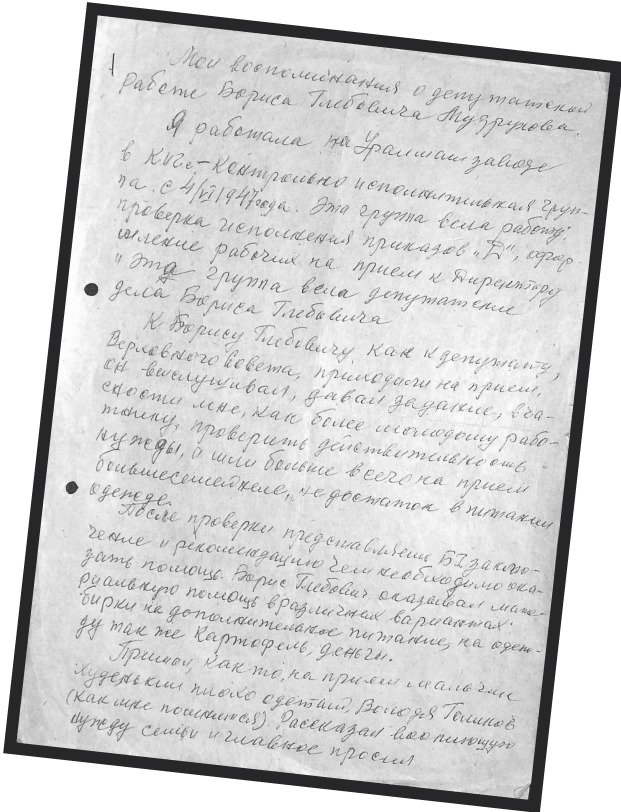 Мои воспоминания о депутатской
работе Бориса Глебовича Музрукова.
Я работала на Уралмашзаводе
в КИГе - Контрольно исполнительная груп-
па. с 4/VI 1947 года. Эта группа вела работу:
проверка исполнения приказов "Д", офор-
мление рабочих на прием к Директору
и эта группа вела депутатские
дела Бориса Глебовича
К Борису Глебовичу, как к депутату,
Верховного Совета, приходили на прием,
он выслушивал, давал задание, в ча-
стности мне, как более молодому рабо-
тнику, проверить действительность
нужды, а шли больше всего на прием
большесемейные, недостаток в питании
одежде.
После проверки представляли БГ заклю-
чение и рекомендацию чем необходимо ока-
зать помощь. Борис Глебович оказывал мате-
риальную помощь в различных вариантах:
бирки на дополнительное питание, на одеж-
ду так же картофель, деньги.
Пришел, как то, на прием мальчик
худенький плохо одетый, Володя
(как мне помнится). Рассказал вопиющую
нужду семьи и главное просил